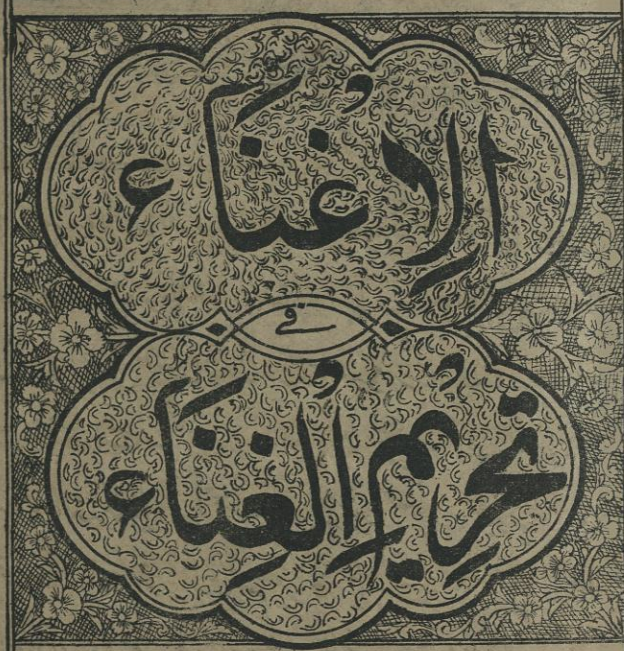 الإغناء
في
تحريم الغناء